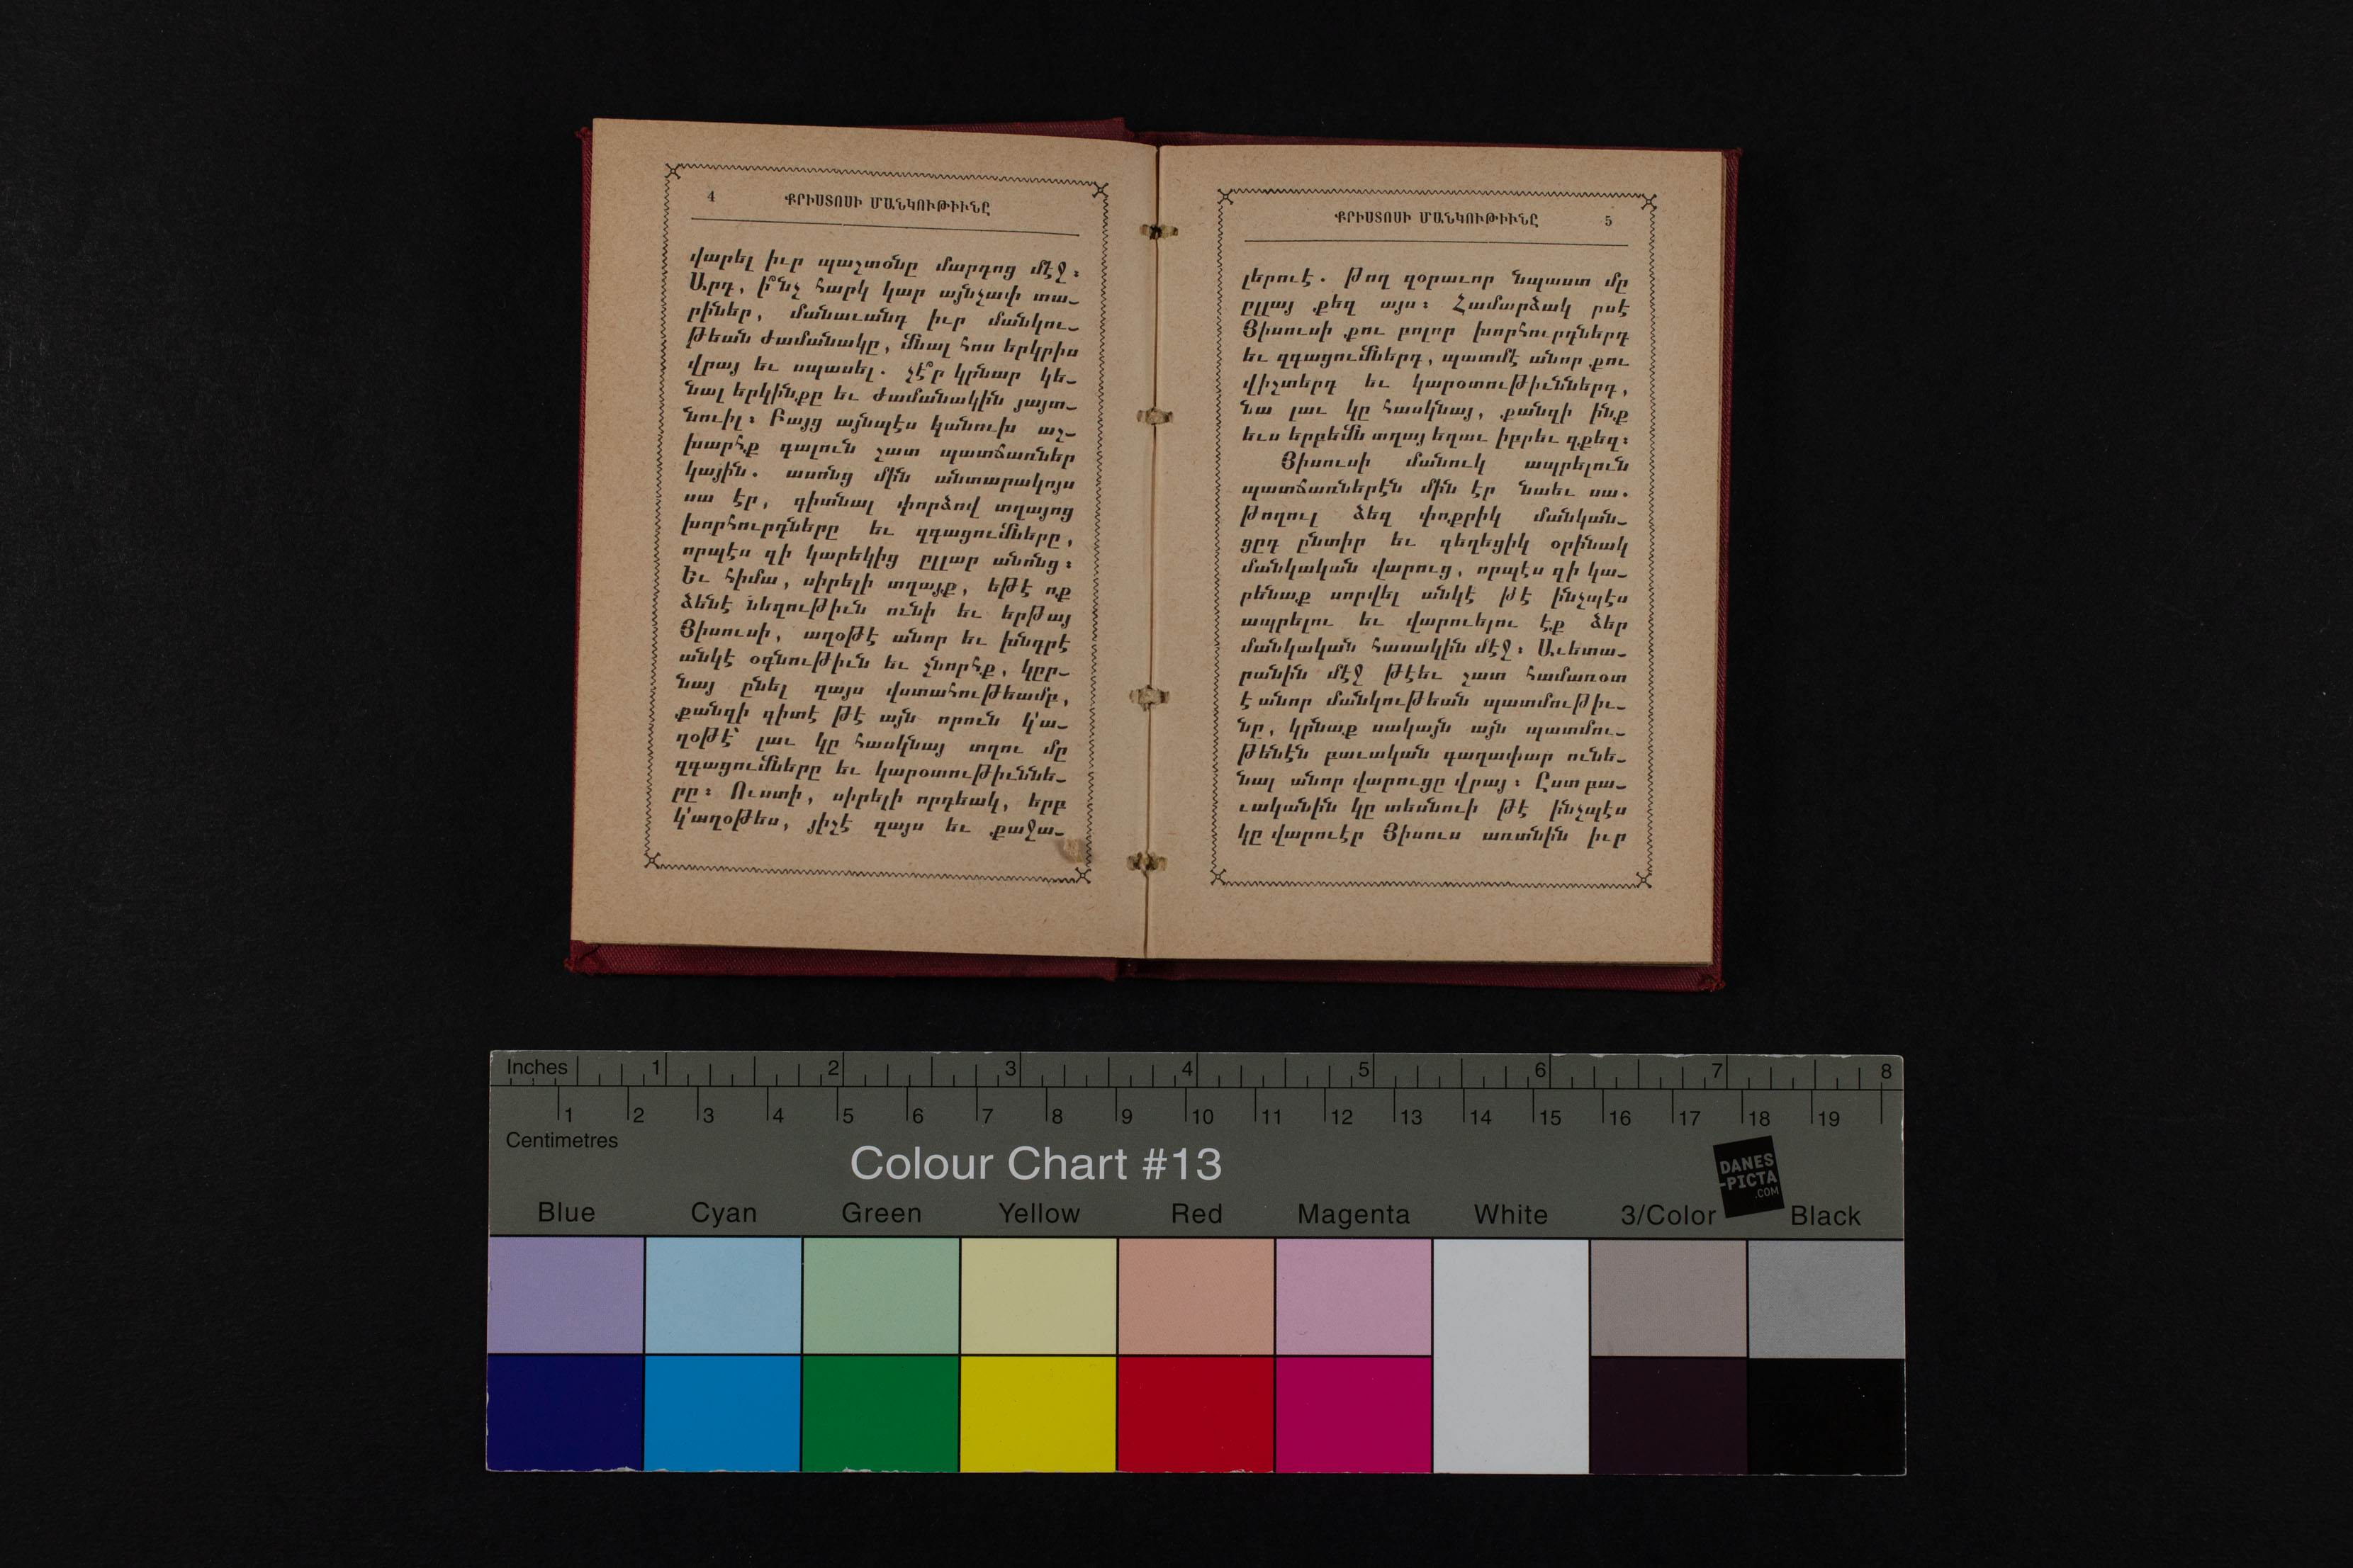 4 ՔՐԻՍՏՈՍԻ ՄԱՆԿՈՒԹԻՒՆԸ
վարել իւր պաշտօնը մարդոց մէջ։
Արդ, ի՞նչ հարկ կար այնչափ տա–
րիներ, մանաւանդ իւր մանկու–
թեան ժամանակը, մնալ հոս երկրիս
վրայ եւ սպասել. չէ՞ր կրնար կե–
նալ երկինքը եւ ժամանակին յայտ–
նուիլ։ Բայց այնպէս կանուխ աշ–
խարհք գալուն շատ պատճառներ
կային. ասոնց մին անտարակոյս
սա էր, գիտնալ փորձով տղայոց
խորհուրդները եւ զգացումները,
որպէս զի կարեկից ըլլար անոնց։
Եւ հիմա, սիրելի տղայք, եթէ ոք
ձենէ նեղութիւն ունի եւ երթայ
Յիսուսի, աղօթէ անոր եւ խնդրէ
անկէ օգնութիւն եւ շնորհք, կըր–
նայ ընել զայս վստահութեամբ,
քանզի գիտէ թէ այն որուն կ'ա–
ղօթէ՝ լաւ կը հասկնայ տղու մը
զգացումները եւ կարօտութիւննե–
րը։ Ուստի, սիրելի որդեակ, երբ
կ'աղօթես, յիշէ զայս եւ քաջա–
ՔՐԻՍՏՈՍԻ ՄԱՆԿՈՒԹԻՒՆԸ 5
լերուէ. Թող զօրաւոր նպաստ մը
ըլլայ քեզ այս։ Համարձակ ըսէ
Յիսուսի քու բոլոր խորհուրդներդ
եւ զգացումներդ, պատմէ անոր քու
վիշտերդ եւ կարօտութիւններդ,
նա լաւ կը հասկնայ, քանզի ինք
եւս երբեմն տղայ եղաւ իբրեւ զքեզ։
Յիսուսի մանուկ ապրելուն
պատճառներէն մին էր նաեւ սա.
թողուլ ձեզ փոքրիկ մանկան–
ցըդ ընտիր եւ գեղեցիկ օրինակ
մանկական վարուց, որպէս զի կա–
րենաք սորվել անկէ թէ ինչպէս
ապրելու եւ վարուելու էք ձեր
մանկական հասակին մէջ։ Աւետա–
րանին մէջ թէեւ շատ համառօտ
է անոր մանկութեան պատմութիւ–
նը, կրնաք սակայն այն պատմու–
թենէն բաւական գաղափար ունե–
նալ անոր վարուցը վրայ։ Ըստ բա–
ւականին կը տեսնուի թէ ինչպէս
կը վարուէր Յիսուս առտնին իւր
Inches 1 2 3 4 5 6 7 8
1 2 3 4 5 6 7 8 9 10 11 12 13 14 15 16 17 18 19
Centimetres
Colour Chart #13
DANES
-PICTA
.COM
Blue Cyan Green Yellow Red Magenta White 3/Color Black